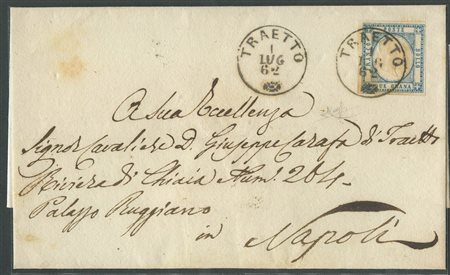 TRAETTO
1
LUG
62
TRAETTO
LUG
62
POSTA
FRANCO
BOLLO
DUE GRANA
A Sua Eccellenza
Signor Cavaliere D. Giuseppe Carafa di Traetto
Riviera di Chiaia Num. 264.
Palazzo Ruggiano
in Napoli